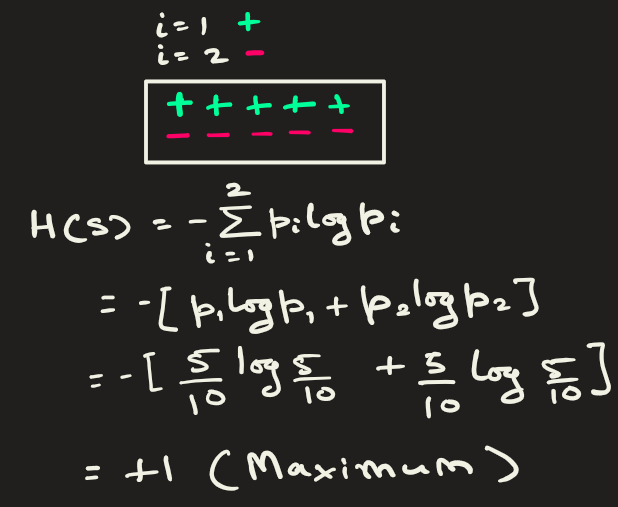 i = 1 +
i = 2 −
+ + + + +
− − − − −
H(s) = - 2∑i=1 pi log pi
= -[ p1 log p1 + p2 log p2 ]
= -[ 5/10 log 5/10 + 5/10 log 5/10 ]
= +1 (Maximum)